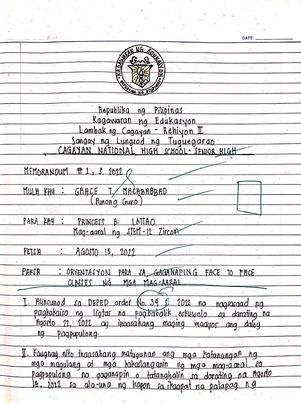 DATE:
KAGAWARAN NG EDUKASYON
Republika ng Pilipinas
Kagawaran ng Edukasyon
Lambak ng Cagayan - Rehiyon II
Sangay ng Lungsod ng Tuguegarao
CAGAYAN NATIONAL HIGH SCHOOL - SENIOR HIGH
MEMORANDUM # 1, s. 2022
MULA KAY : GRACE T. MACABABBAD
(Punong Guro)
PARA KAY : PRINCESS B. LATTAO
Mag-aaral ng STEM-12 Zircon
PETSA : AGOSTO 13, 2022
PAKSA : ORYENTASYON PARA SA GAGANAPING FACE TO FACE
CLASSES NG MGA MAG-AARAL
I. Alinsunod sa DEPED order No. 34 s. 2022 na nagsasaad ng
pagbabalik eskuwela sa darating na
Agosto 22, 2022 ay inaasahang maging maayos ang daloy
ng pagpupulong.
II. Kaugnay nito inaasahang matugunan ang mga katanungan ng
mga magulang at mga kakailanganin ng mga mag-aaral sa
pagpupulong na gaganapin sa darating na Agosto
18, 2022 sa ala-una ng hapon sa ikaapat na palapag ng